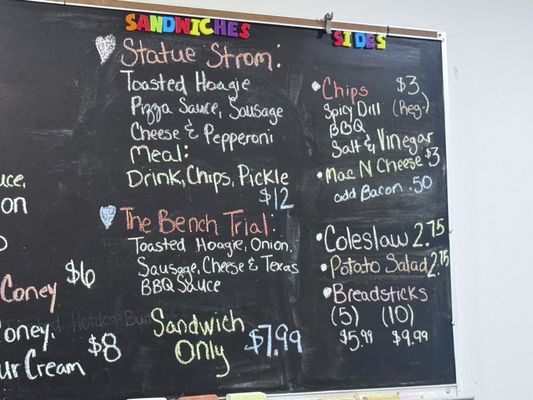 SANDWICHES
Statue Strom:
Toasted Hoagie
Pizza Sauce, Sausage
Cheese & Pepperoni
Meal:
Drink, Chips, Pickle
$12
The Bench Trial:
Toasted Hoagie, Onion,
Sausage, Cheese & Texas
BBQ Sauce
Sandwich $7.99
Only
SIDES
Chips $3
Spicy Dill (Reg.)
BBQ
Salt & Vinegar
Mac N Cheese $3
add Bacon .50
Coleslaw 2.75
Potato Salad 2.75
Breadsticks
(5) (10)
$5.99 $9.99
$6
Coney
$8
Cream